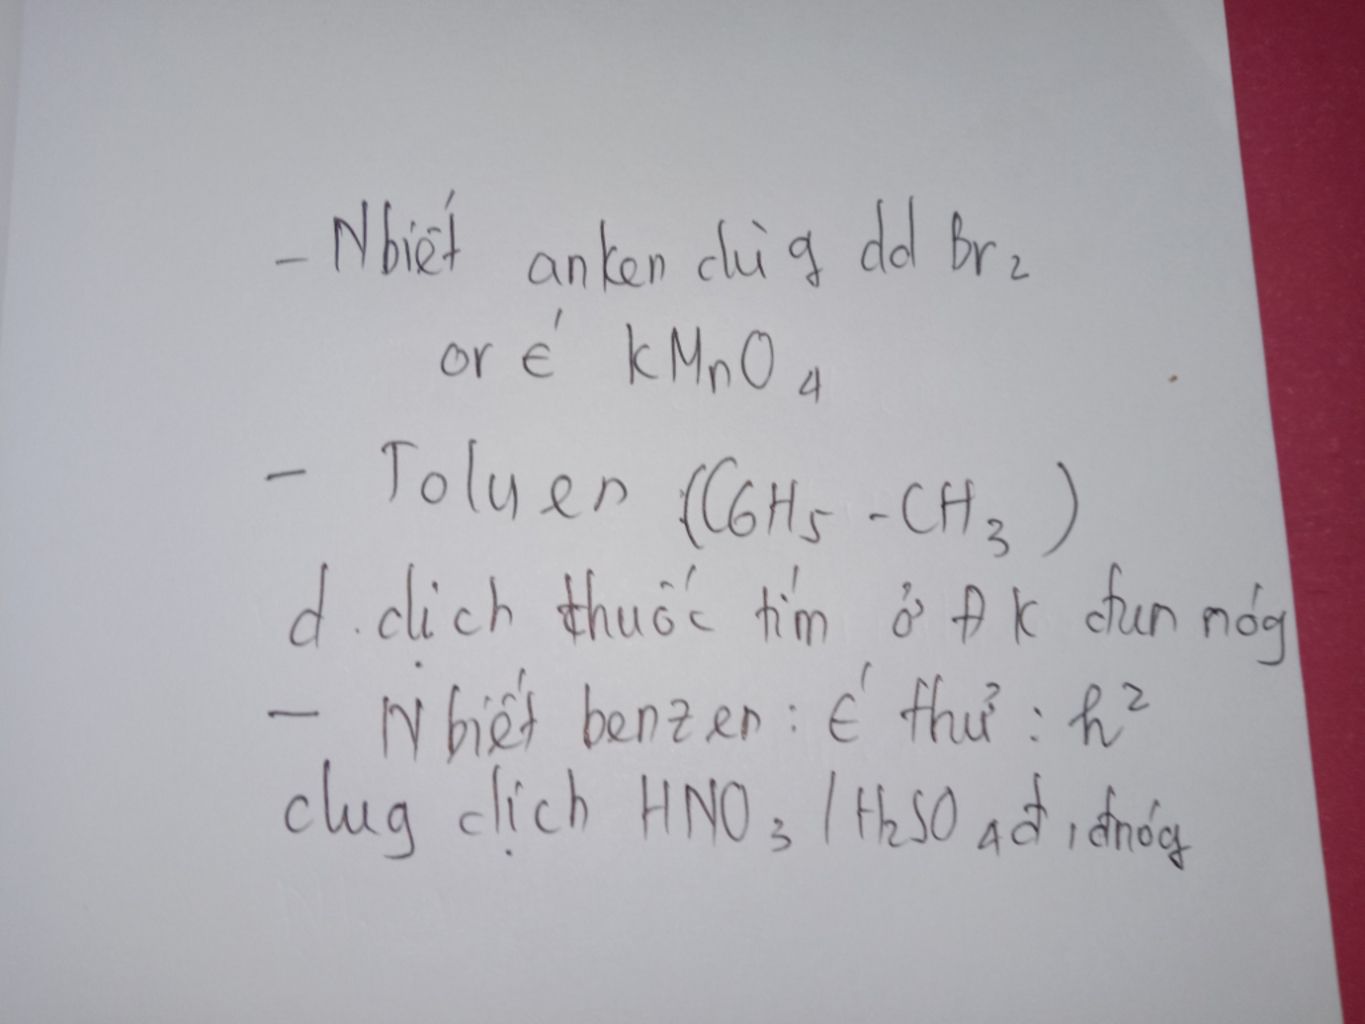 - Nbiết anken dùg dd Br2
or є' KMnO4
- Toluen (C6H5 - CH3)
d.dịch thuốc tím ở ĐK đun nóg
- Nbiết benzen : є' thử : h2
dug dịch HNO3 / H2SO4đ, đnóg